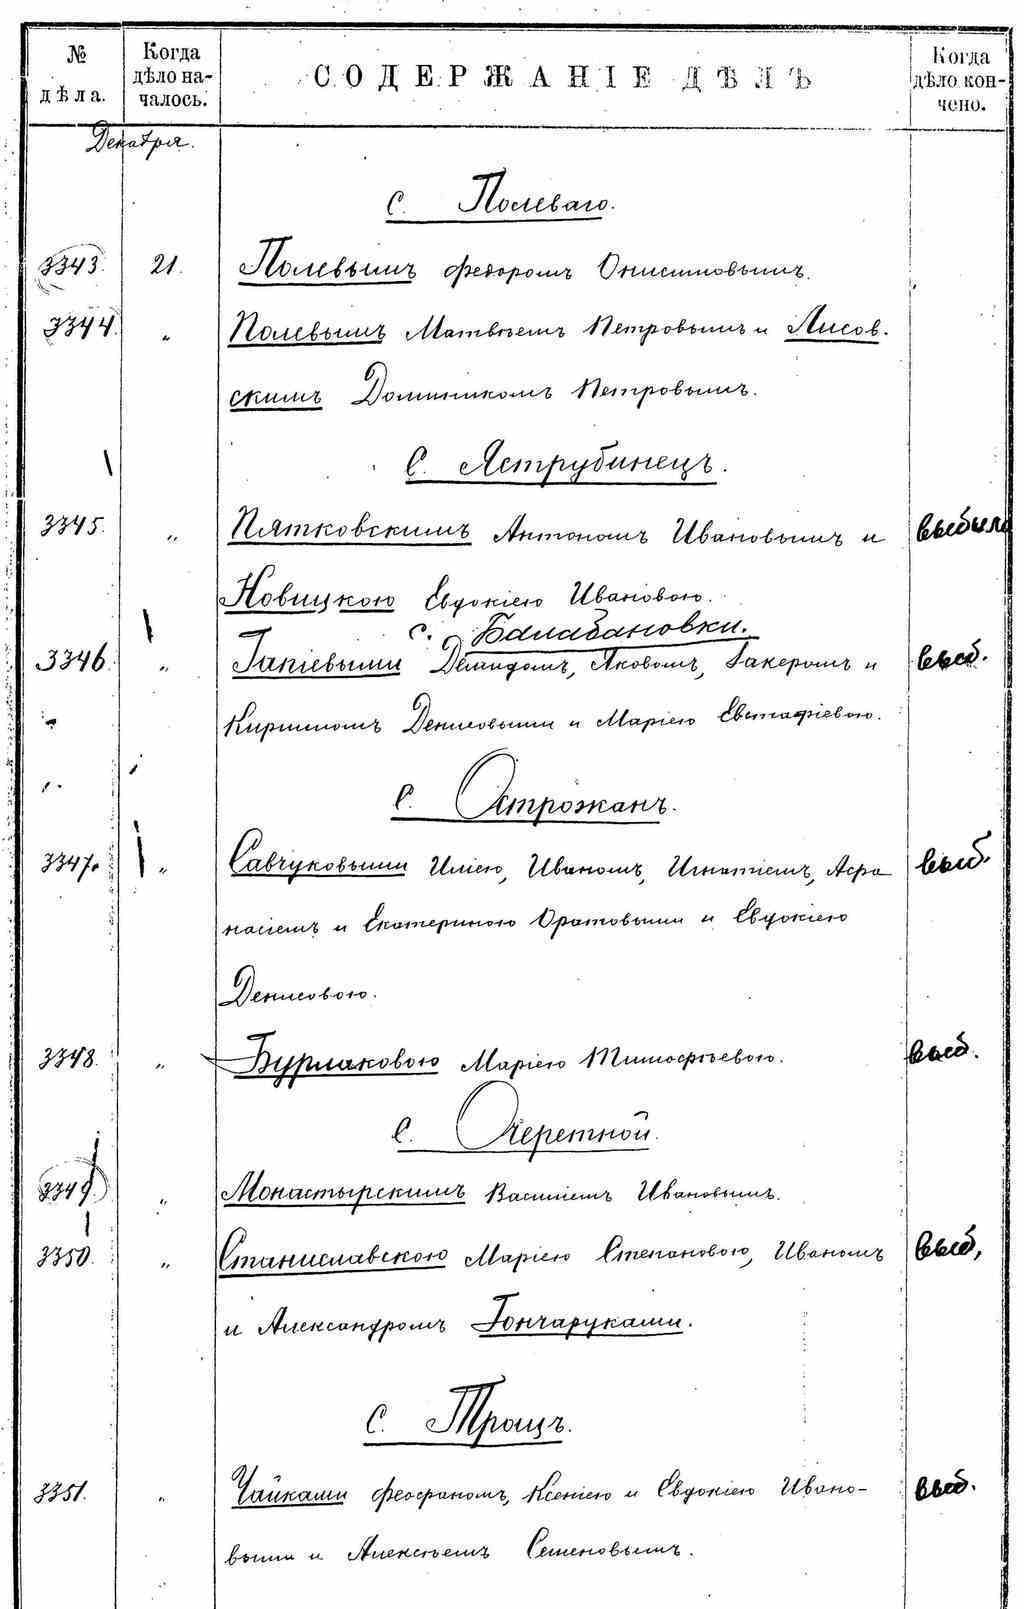 № дѣла.
Когда дѣло на-чалось.
СОДЕРЖАНІЕ ДѢЛЪ
Когда дѣло кон-чено.
Декабря.
с. Полеваго.
3343. 21. Полевымъ Федоромъ Онисимовымъ.
3344. " Полевымъ Матвѣемъ Петровымъ и Лисов-
скимъ Доминикомъ Петровымъ.
С. Яструбинецъ.
3345. " Пятковскимъ Антономъ Ивановымъ и выбыло
Новицкою Евдокіею Ивановою.
с. Балабановки.
3346. " Гапіевыми Демидомъ, Яковомъ, и выб.
Денисовыми и Маріею Евстафіевою.
С. Острожанъ.
3347. " Савчуковыми Иліею, Иваномъ, Игнатіемъ, Афа выб.
насіемъ и Екатериною и Евдокіею
Денисовою.
3348. " Бурлаковою Маріею Тимофѣевою. выб.
С. Очеретной.
3349. " Монастырскимъ Василіемъ Ивановымъ.
3350. " Станиславскою Маріею Степановою, Иваномъ выб,
и Александромъ Гончаруками.
С. Трощъ.
3351. " Чайками Феофаномъ, Ксеніею и Евдокіею Ивано- выб.
выми и Алексѣемъ Семеновымъ.